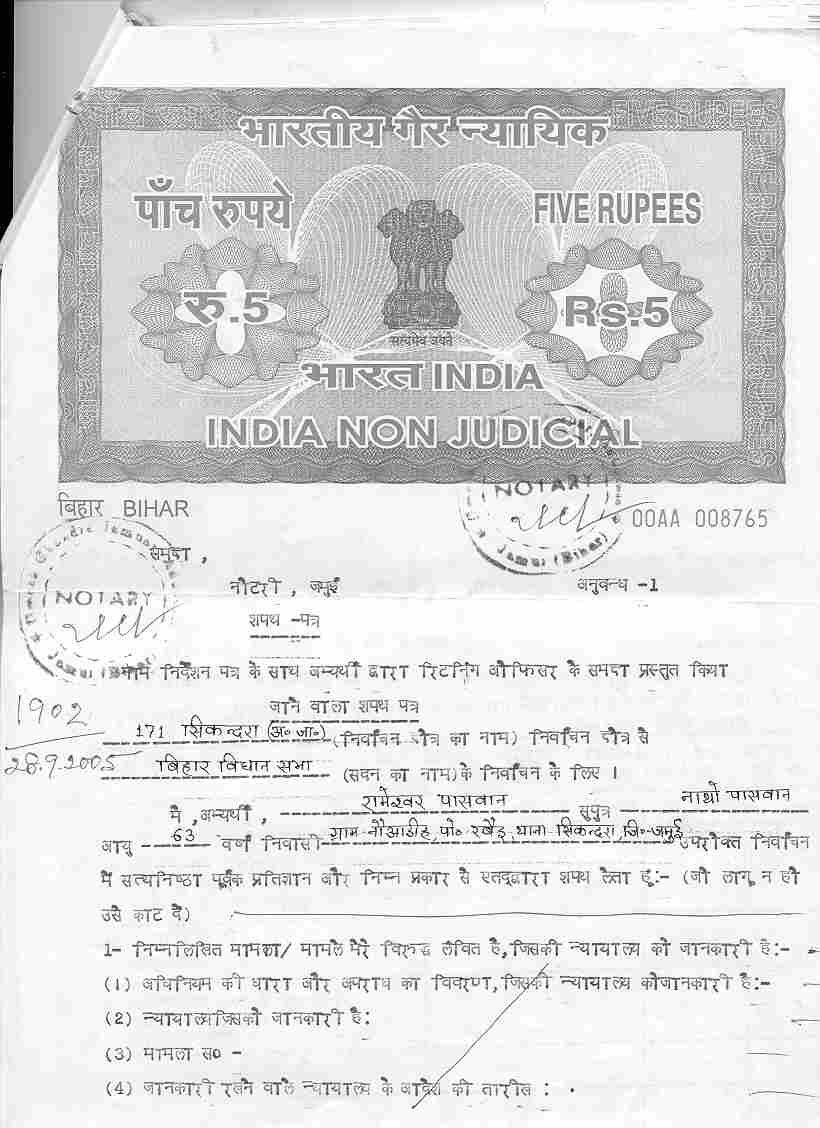 FIVE RUPEES
भारतीय गैर न्यायिक
पाँच रुपये
FIVE RUPEES
रु.5
Rs.5
सत्यमेव जयते
भारत INDIA
INDIA NON JUDICIAL
बिहार BIHAR
00AA 008765
NOTARY
Jamui (Bihar)
समक्ष,
NOTARY
Jamui (Bihar)
नोटरी, जमुई
अनुबन्ध -1
शपथ -पत्र
निर्देशन पत्र के साथ अभ्यर्थी द्वारा रिटर्निंग ऑफिसर के समक्ष प्रस्तुत किया
जाने वाला शपथ पत्र
1902
171 सिकन्दरा (अ० जा०) (निर्वाचन क्षेत्र का नाम) निर्वाचन क्षेत्र से
28.9.2005
बिहार विधान सभा (सदन का नाम) के निर्वाचन के लिए ।
मै, अभ्यर्थी, रामेश्वर पासवान सुपुत्र नाथो पासवान
आयु 63 वर्ष निवासी ग्राम नौआडीह, पो० थाना सिकन्दरा, जि०-जमुई उपरोक्त निर्वाचन
मे सत्यनिष्ठा पूर्वक प्रतिज्ञान और निम्न प्रकार से एतद्द्वारा शपथ लेता हूं:- (जो लागू न हो
उसे काट दें)
1- निम्नलिखित मामला/ मामले मेरे विरुद्ध लंबित है, जिसकी न्यायालय को जानकारी है:-
(1) अधिनियम की धारा और अपराध का विवरण, जिसकी न्यायालय कोजानकारी है:-
(2) न्यायालयजिसको जानकारी है:
(3) मामला स० -
(4) जानकारी रखने वाले न्यायालय के आदेश की तारीख :